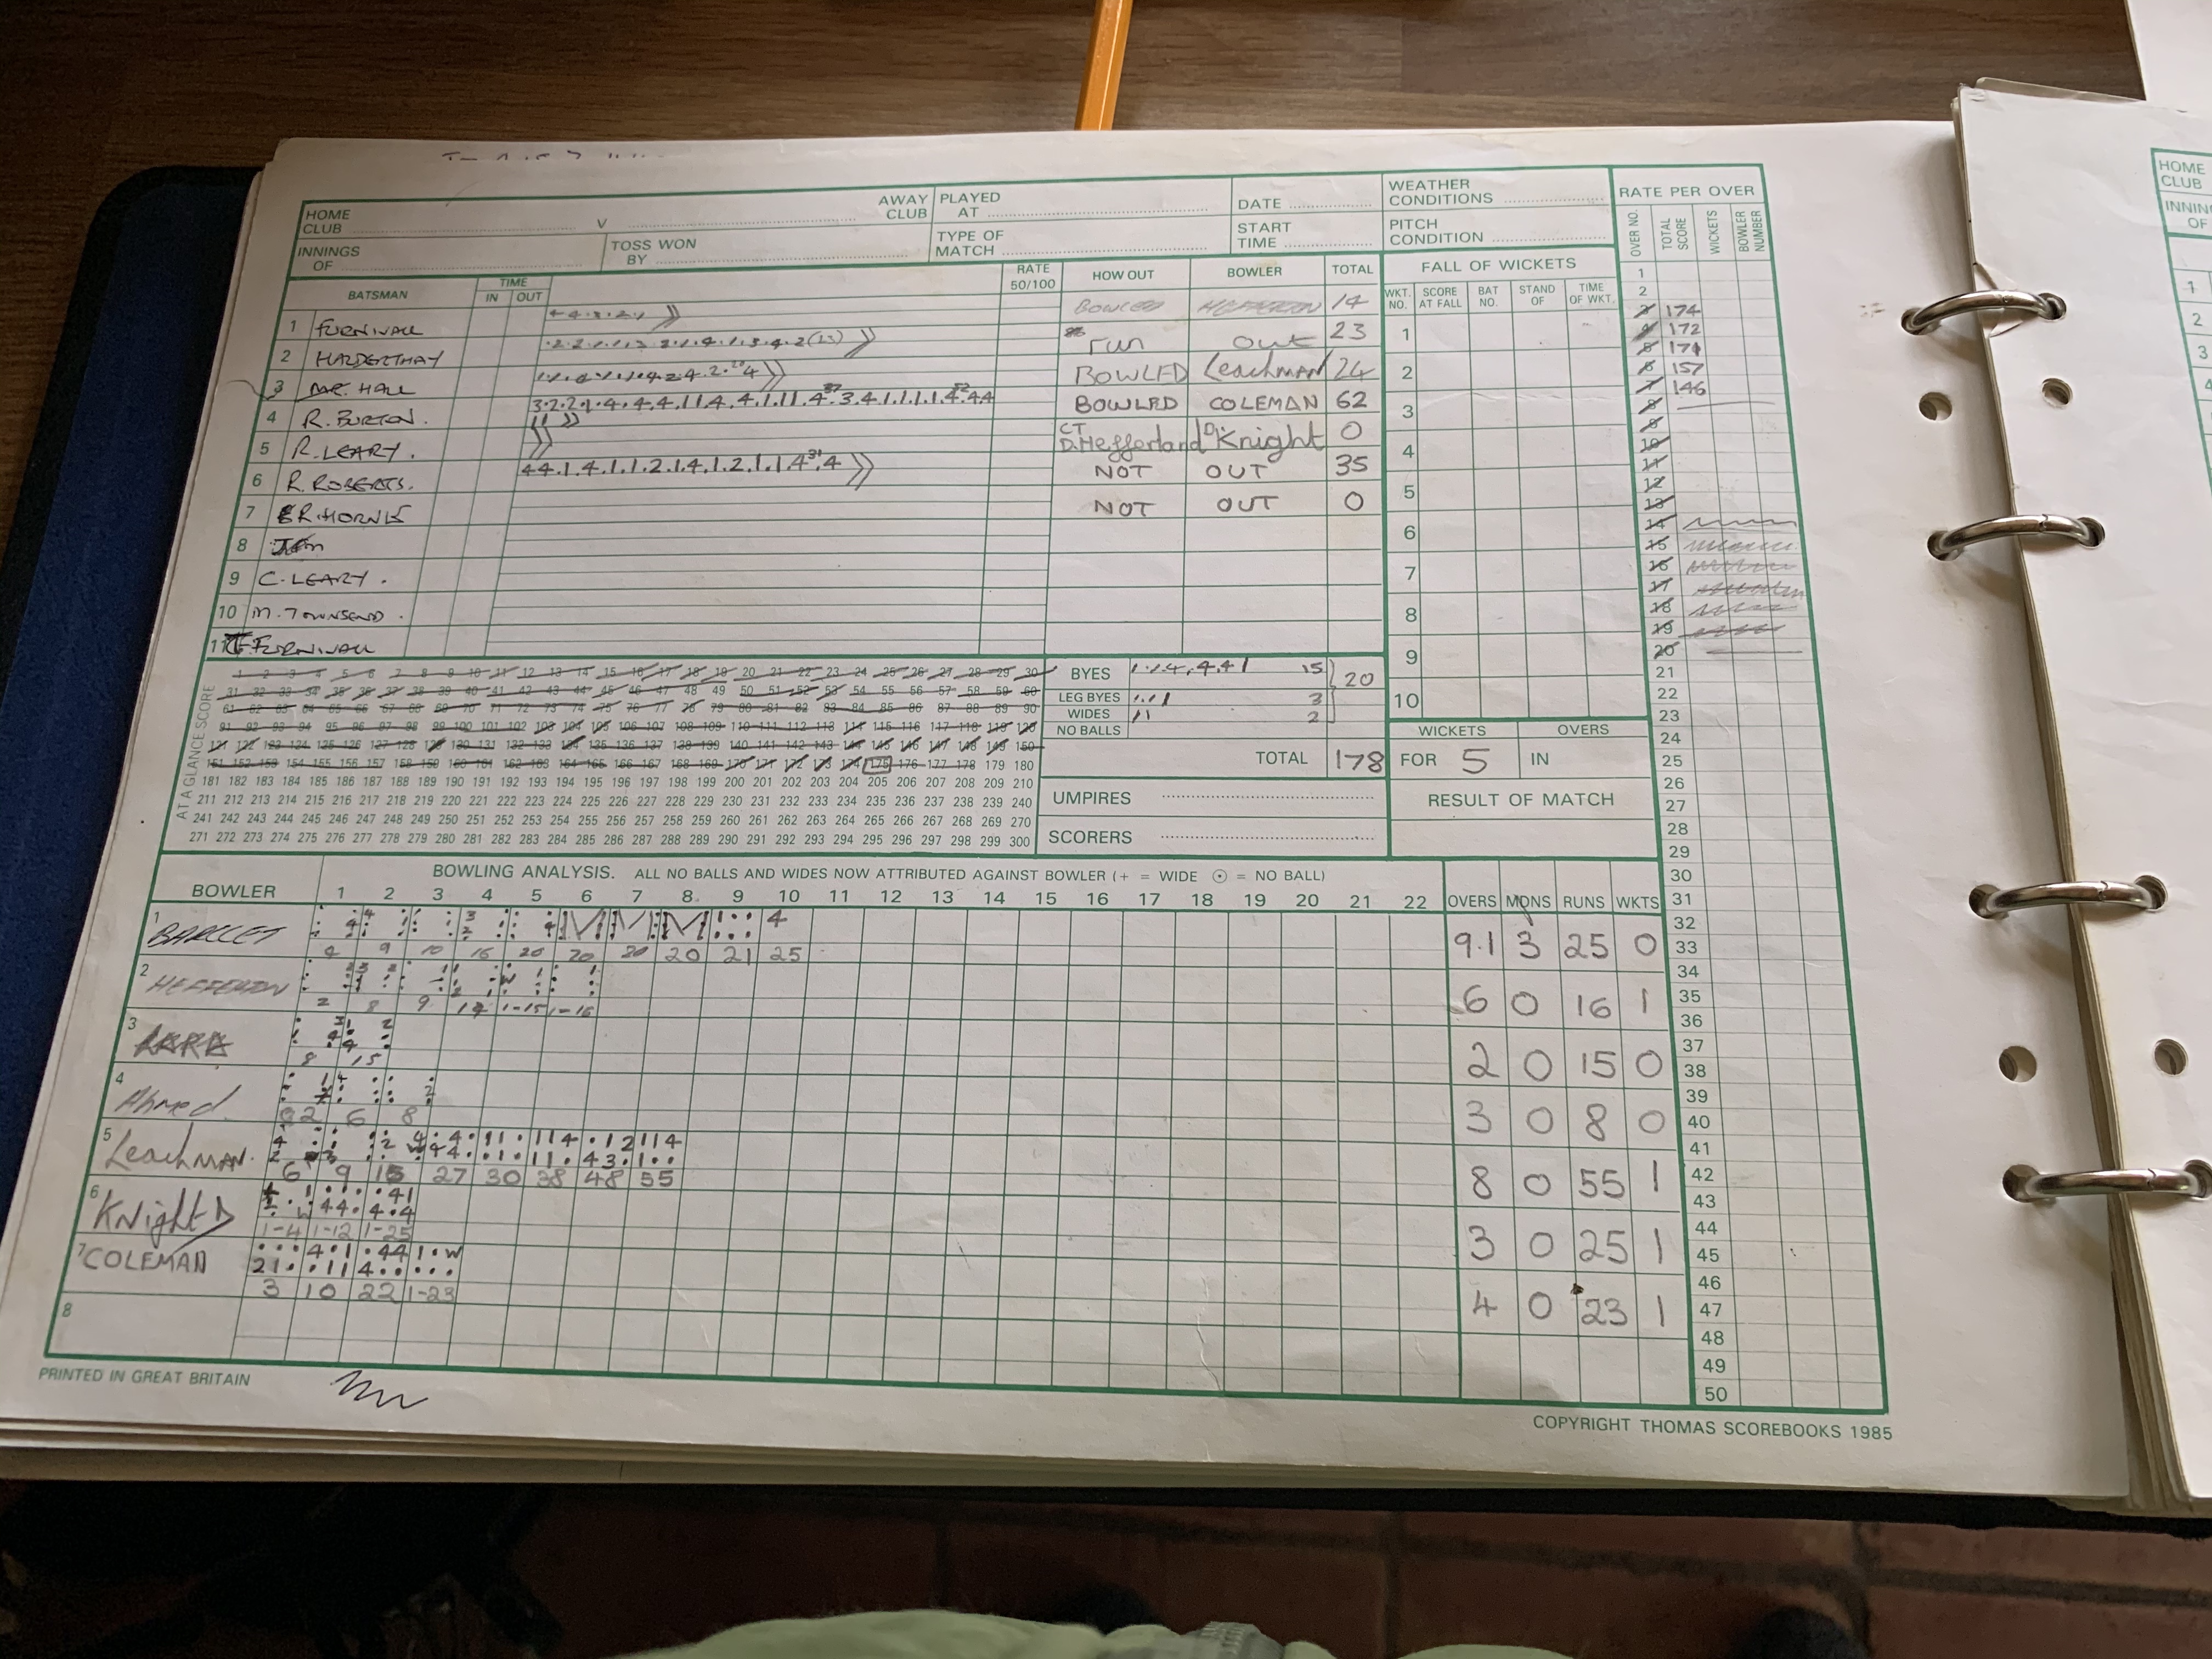 HOME CLUB V AWAY CLUB PLAYED AT DATE WEATHER CONDITIONS RATE PER OVER
INNINGS OF TOSS WON BY TYPE OF MATCH START TIME PITCH CONDITION
OVER NO. TOTAL SCORE WICKETS BOWLER NUMBER
BATSMAN TIME IN OUT RATE 50/100 HOW OUT BOWLER TOTAL FALL OF WICKETS
WKT. NO. SCORE AT FALL BAT NO. STAND OF TIME OF WKT.
1 FURNIVALL BOWLED HEFFERTON 14
2 run out 23
3 MR. HALL BOWLED Leachman 24
4 R. BURTON. BOWLED COLEMAN 62
5 R. LEARY. CT D. Hefferland D. Knight 0
6 R. ROBERTS. 44.1.4.1.1.2.1.4.1.2.1.1.4.4 NOT OUT 35
7 NOT OUT 0
8
9 C. LEARY.
10 M. TOWNSEND.
11 FURNIVALL
1 2 3 4 5 6 7 8 9 10
1
2
3 174
4 172
5 171
6 157
7 146
8
9
10
11
12
13
14
15
16
17
18
19
20
21
22
23
24
25
26
27
28
29
30
31
32
33
34
35
36
37
38
39
40
41
42
43
44
45
46
47
48
49
50
AT A GLANCE SCORE
1 2 3 4 5 6 7 8 9 10 11 12 13 14 15 16 17 18 19 20 21 22 23 24 25 26 27 28 29 30
31 32 33 34 35 36 37 38 39 40 41 42 43 44 45 46 47 48 49 50 51 52 53 54 55 56 57 58 59 60
61 62 63 64 65 66 67 68 69 70 71 72 73 74 75 76 77 78 79 80 81 82 83 84 85 86 87 88 89 90
91 92 93 94 95 96 97 98 99 100 101 102 103 104 105 106 107 108 109 110 111 112 113 114 115 116 117 118 119 120
121 122 123 124 125 126 127 128 129 130 131 132 133 134 135 136 137 138 139 140 141 142 143 144 145 146 147 148 149 150
151 152 153 154 155 156 157 158 159 160 161 162 163 164 165 166 167 168 169 170 171 172 173 174 175 176 177 178 179 180
181 182 183 184 185 186 187 188 189 190 191 192 193 194 195 196 197 198 199 200 201 202 203 204 205 206 207 208 209 210
211 212 213 214 215 216 217 218 219 220 221 222 223 224 225 226 227 228 229 230 231 232 233 234 235 236 237 238 239 240
241 242 243 244 245 246 247 248 249 250 251 252 253 254 255 256 257 258 259 260 261 262 263 264 265 266 267 268 269 270
271 272 273 274 275 276 277 278 279 280 281 282 283 284 285 286 287 288 289 290 291 292 293 294 295 296 297 298 299 300
BYES 15 20
LEG BYES 3
WIDES 2
NO BALLS
TOTAL 178
WICKETS OVERS
FOR 5 IN
UMPIRES
SCORERS
RESULT OF MATCH
BOWLER BOWLING ANALYSIS. ALL NO BALLS AND WIDES NOW ATTRIBUTED AGAINST BOWLER (+ = WIDE ⊙ = NO BALL)
1 2 3 4 5 6 7 8 9 10 11 12 13 14 15 16 17 18 19 20 21 22 OVERS MDNS RUNS WKTS
1 4 9 10 15 20 20 20 20 21 25 9.1 3 25 0
2 HEFFERTON 2 8 9 14 1-15 1-16 6 0 16 1
3 8 15 2 0 15 0
4 Ahmed. 2 6 8 3 0 8 0
5 Leachman. 6 9 15 27 30 38 48 55 8 0 55 1
6 Knight D 1-4 1-12 1-25 3 0 25 1
7 COLEMAN 3 10 22 1-23 4 0 23 1
8
PRINTED IN GREAT BRITAIN
COPYRIGHT THOMAS SCOREBOOKS 1985
HOME CLUB
INNINGS OF
1
2
3
4
5
6
7
8
9
10
11